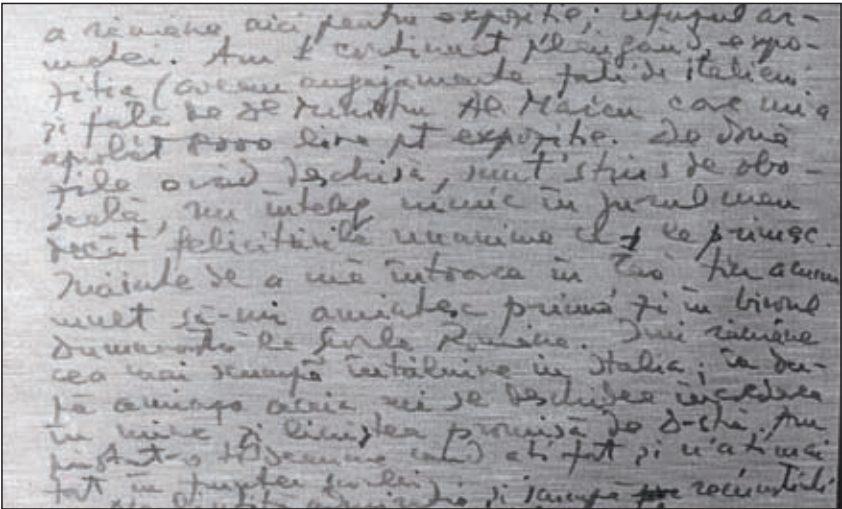 a rămâne aici pentru expoziție; refuzul ar-
matei. Am continuat plângând, expo-
ziția (aveam angajamente față de italieni
și față de de Ministru Al Marcu care mi-a
aprobat 8000 lire pt expoziție. De două
zile o văd deschisă, sunt stors de obo-
seală, nu înțeleg nimic în jurul meu
decât felicitările unanime ce le primesc.
Înainte de a mă întoarce în țară țin acum
mult să-mi amintesc prima zi în biroul
Dumneavoastră la Școala Română. Îmi rămâne
cea mai scumpă întâlnire în Italia; în du-
pă amiaza aceia mi se deschidea încrederea
în mine și liniștea promisă de d-stră. Am
o însemne când ați fot și n'ați mai
fot în fruntea școlii)
admirație și scumpă recunoștință